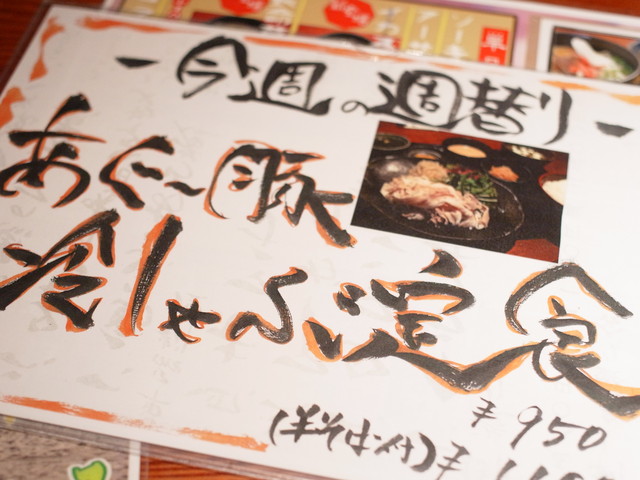 －今週の週替り－
あぐー豚
冷しゃぶ定食
¥950
(半そば付)¥